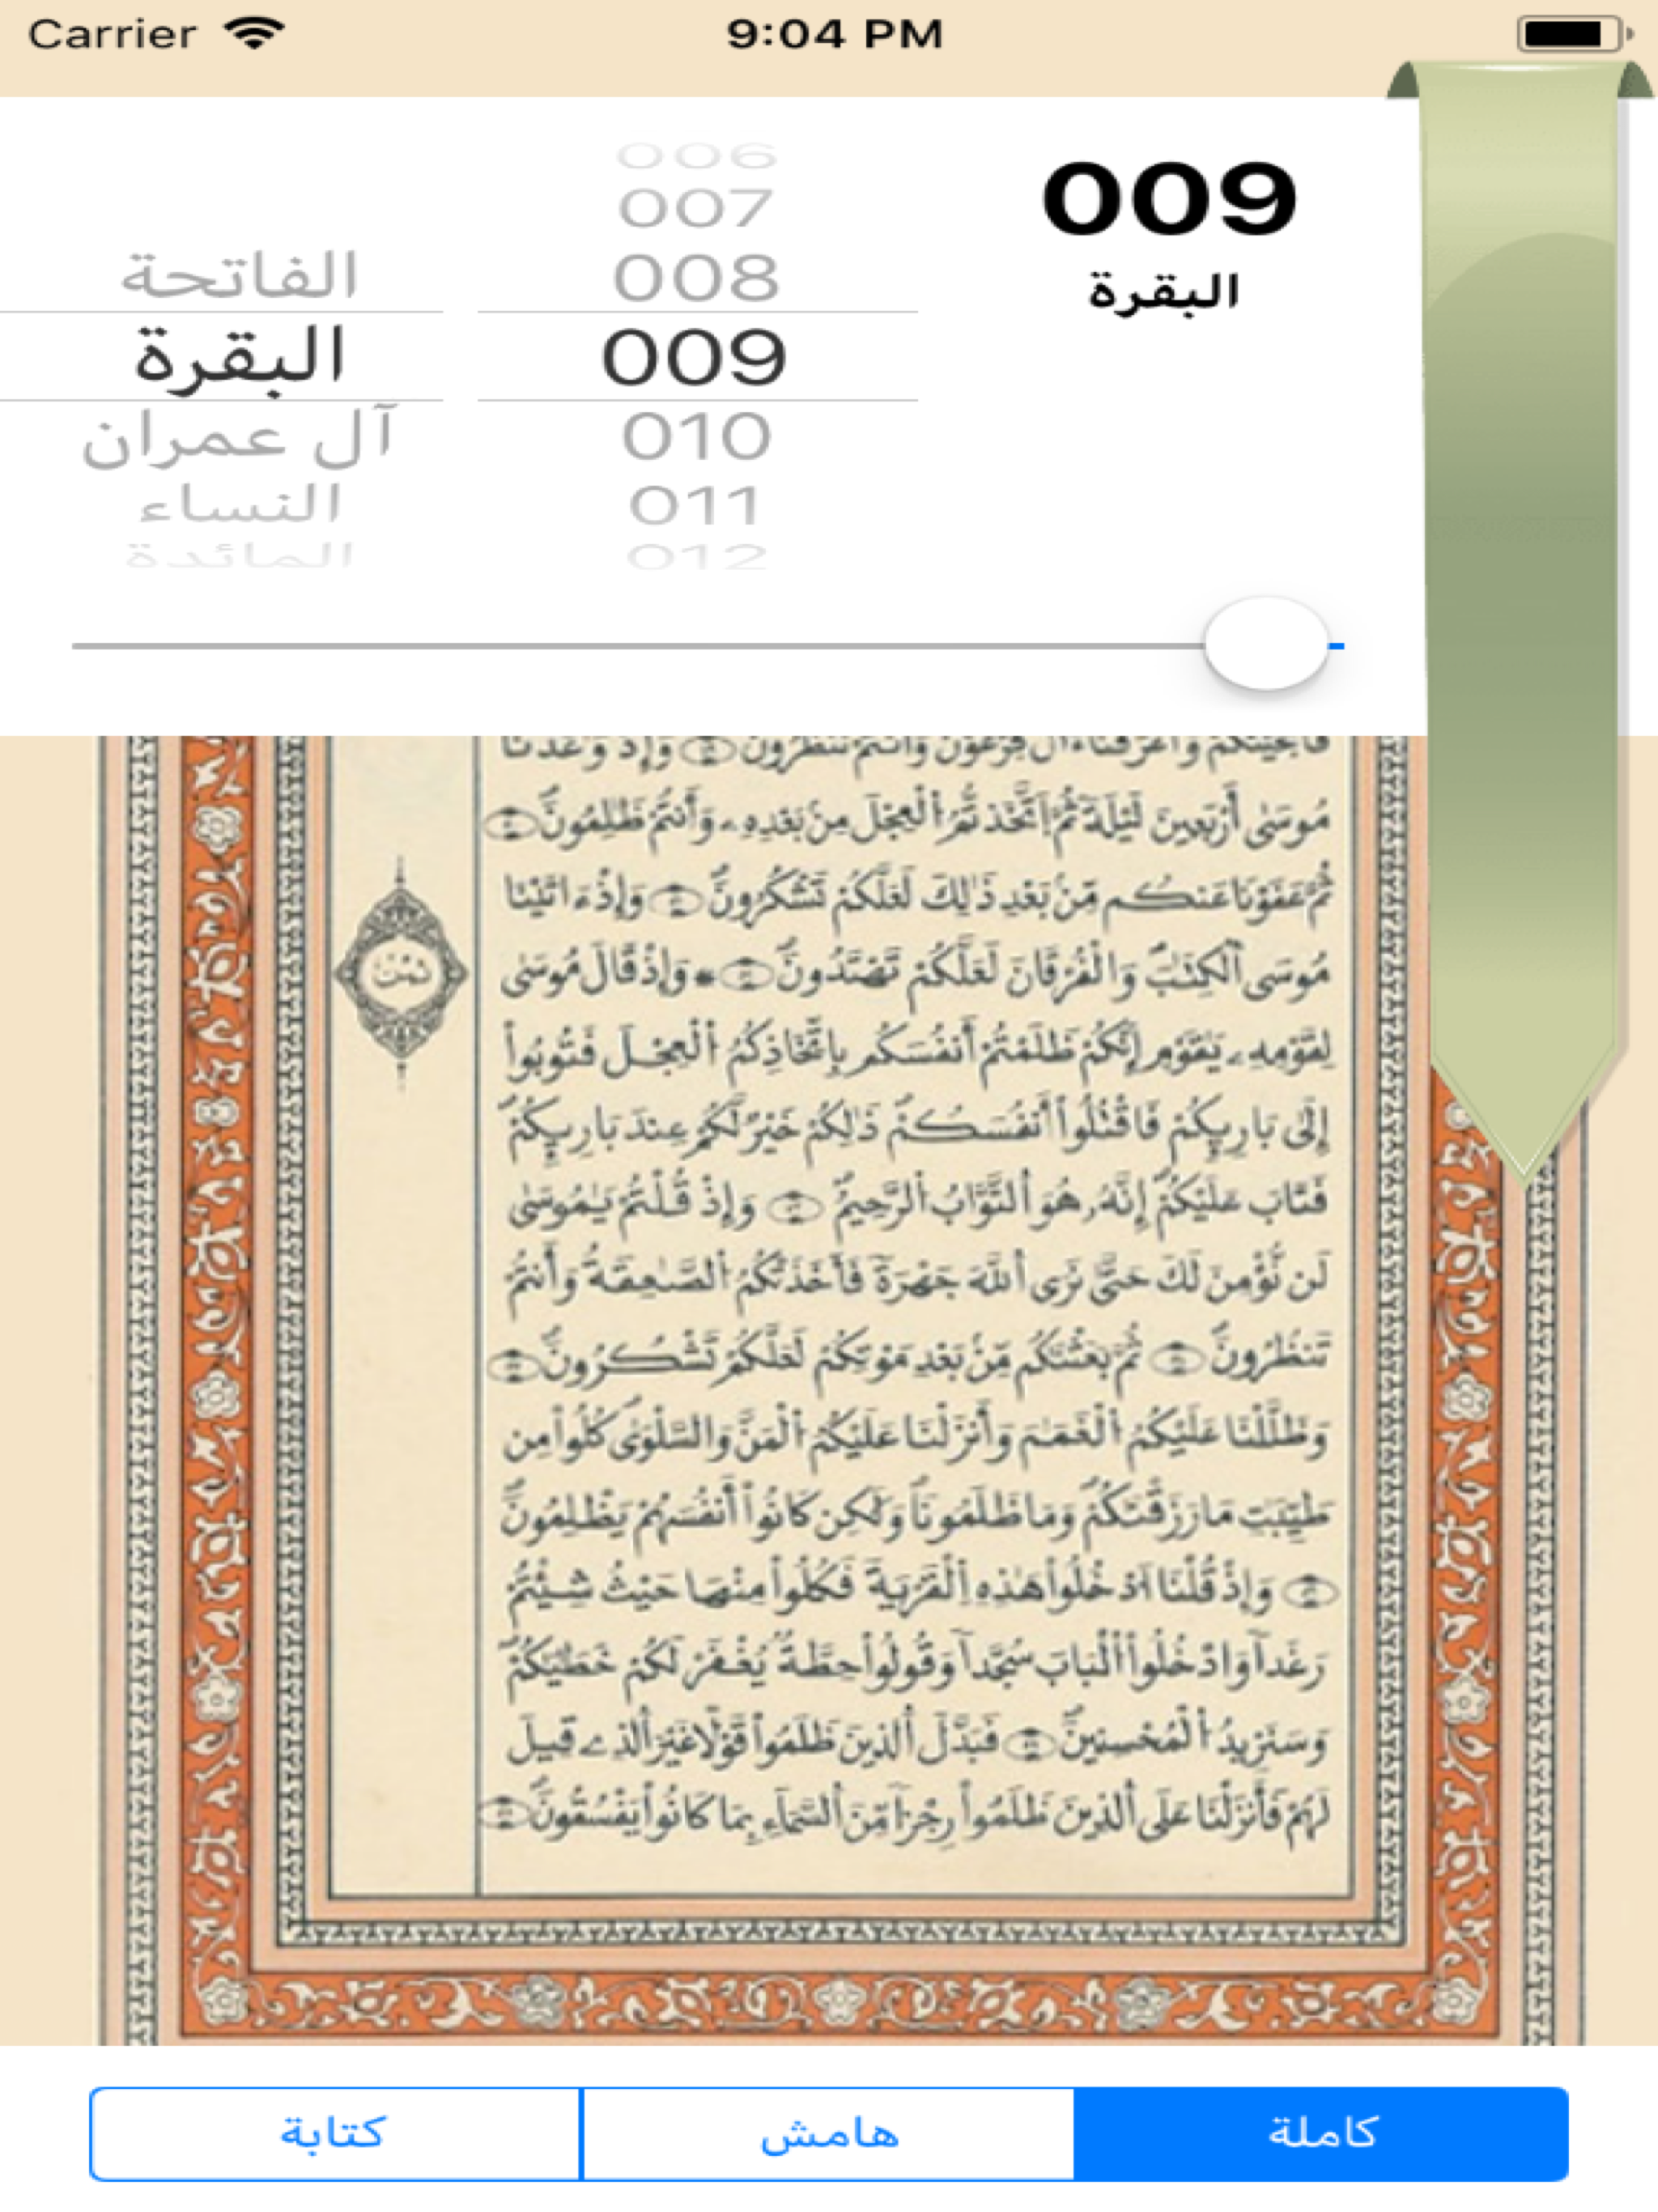 Carrier
9:04 PM
006
007
008
009
010
011
012
الفاتحة
البقرة
آل عمران
النساء
المائدة
009
البقرة
فَأَنجَيْنَٰكُمْ وَأَغْرَقْنَا ءَالَ فِرْعَوْنَ وَأَنتُمْ تَنظُرُونَ وَإِذْ وَٰعَدْنَا
مُوسَىٰ أَرْبَعِينَ لَيْلَةً ثُمَّ اَتَّخَذتُّمُ اُلْعِجْلَ مِنۢ بَعْدِهِۦ وَأَنتُمْ ظَٰلِمُونَ
ثُمَّ عَفَوْنَا عَنكُم مِّنۢ بَعْدِ ذَٰلِكَ لَعَلَّكُمْ تَشْكُرُونَ وَإِذْ ءَاتَيْنَا
مُوسَى اَلْكِتَٰبَ وَالْفُرْقَانَ لَعَلَّكُمْ تَهْتَدُونَ وَإِذْ قَالَ مُوسَىٰ
لِقَوْمِهِۦ يَٰقَوْمِ إِنَّكُمْ ظَلَمْتُمْ أَنفُسَكُم بِاتِّخَاذِكُمُ اُلْعِجْلَ فَتُوبُواْ
إِلَىٰ بَارِئِكُمْ فَاقْتُلُواْ أَنفُسَكُمْ ذَٰلِكُمْ خَيْرٌ لَّكُمْ عِندَ بَارِئِكُمْ
فَتَابَ عَلَيْكُمْ إِنَّهُۥ هُوَ اَلتَّوَّابُ اُلرَّحِيمُ وَإِذْ قُلْتُمْ يَٰمُوسَىٰ
لَن نُّؤْمِنَ لَكَ حَتَّىٰ نَرَى اَللَّهَ جَهْرَةً فَأَخَذَتْكُمُ اُلصَّٰعِقَةُ وَأَنتُمْ
تَنظُرُونَ ثُمَّ بَعَثْنَٰكُم مِّنۢ بَعْدِ مَوْتِكُمْ لَعَلَّكُمْ تَشْكُرُونَ
وَظَلَّلْنَا عَلَيْكُمُ اُلْغَمَٰمَ وَأَنزَلْنَا عَلَيْكُمُ اُلْمَنَّ وَالسَّلْوَىٰ كُلُواْ مِن
طَيِّبَٰتِ مَا رَزَقْنَٰكُمْ وَمَا ظَلَمُونَا وَلَٰكِن كَانُواْ أَنفُسَهُمْ يَظْلِمُونَ
وَإِذْ قُلْنَا اَدْخُلُواْ هَٰذِهِ اِلْقَرْيَةَ فَكُلُواْ مِنْهَا حَيْثُ شِئْتُمْ
رَغَداً وَادْخُلُواْ اُلْبَابَ سُجَّداً وَقُولُواْ حِطَّةٌ يُغْفَرْ لَكُمْ خَطَٰيَٰكُمْ
وَسَنَزِيدُ اُلْمُحْسِنِينَ فَبَدَّلَ اَلذِينَ ظَلَمُواْ قَوْلاً غَيْرَ اَلذِے قِيلَ
لَهُمْ فَأَنزَلْنَا عَلَى اَلذِينَ ظَلَمُواْ رِجْزاً مِّنَ اَلسَّمَآءِ بِمَا كَانُواْ يَفْسُقُونَ
ثمن
كاملة
هامش
كتابة